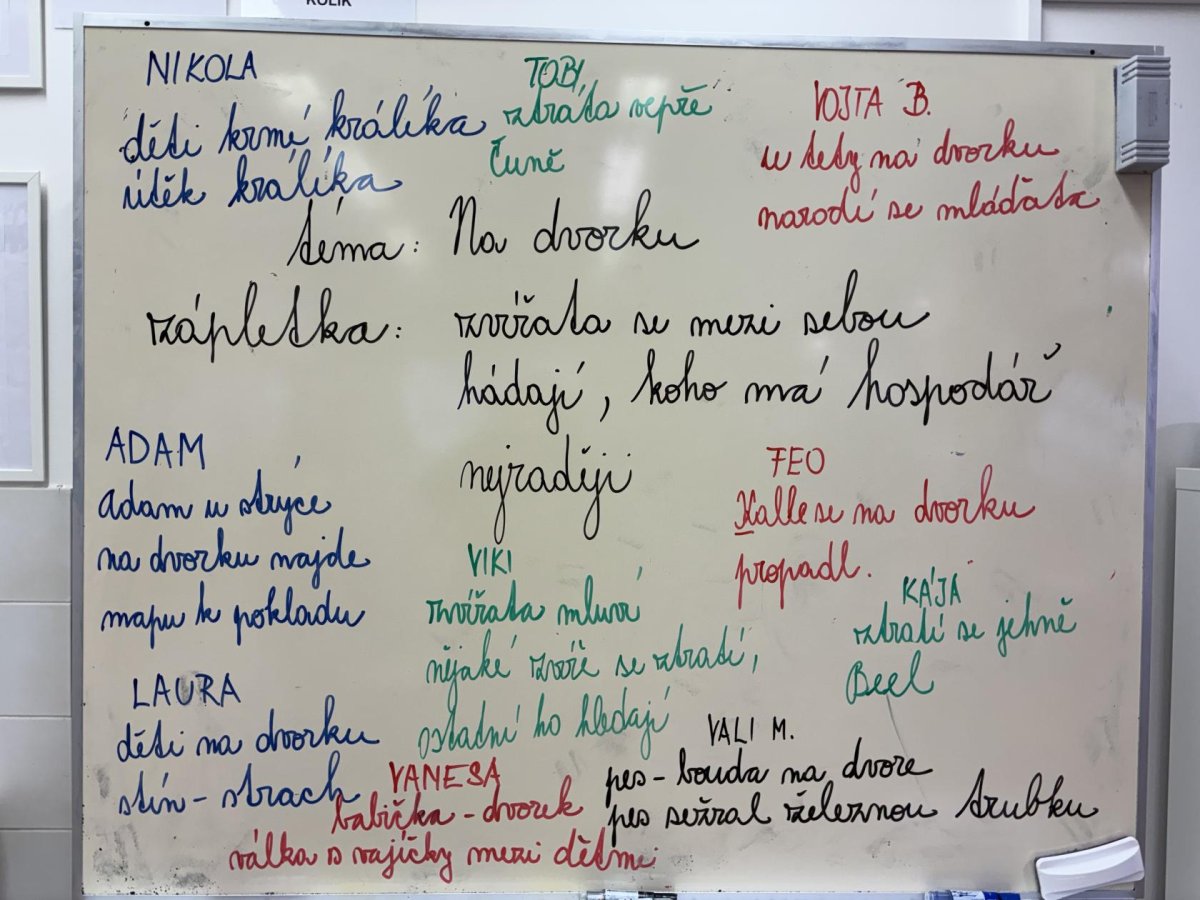 KULIK
NIKOLA
děti krmí králíka
útěk králíka
TOBI
ztráta vepře
Čuně
VOJTA B.
u tety na dvorku
narodí se mláďata
téma: Na dvorku
zápletka: zvířata se mezi sebou
hádají, koho má hospodář
nejraději
ADAM
adam u strýce
na dvorku najde
mapu k pokladu
FEO
Kalle se na dvorku
propadl.
VIKI
zvířata mluví
nějaké zvíře se ztratí,
ostatní ho hledají
KÁJA
ztratí se jehně
Beel
LAURA
děti na dvorku
stín - strach
VANESA
babička - dvorek
válka s vajíčky mezi dětmi
VALI M.
pes - bouda na dvoře
pes sežral železnou trubku